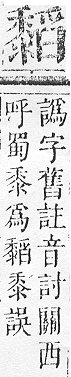 䵚
譌字舊註音討關西
呼蜀黍爲䵚黍誤